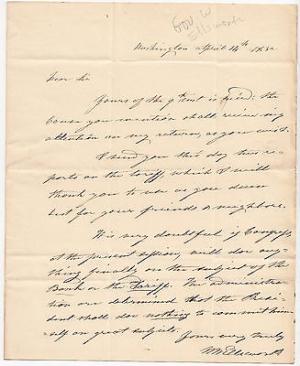 Gov. W
Ellsworth
Washington April 14th 1832
Dear Sir
Yours of the 9th inst is rec'd: the
cause you mention shall receive my
attention on my return, as you wish.
I send you this day two re-
ports on the tariff which I will
thank you to use as you deem
best for your friends & neighbors.
It is very doubtful if Congress
at the present session, will do any
thing finally, on the subject of the
Bank or the Tariff. The administra-
tion are determined that the Presi-
dent shall do nothing to commit him-
self on great subjects.
Yours very truly
W W Ellsworth